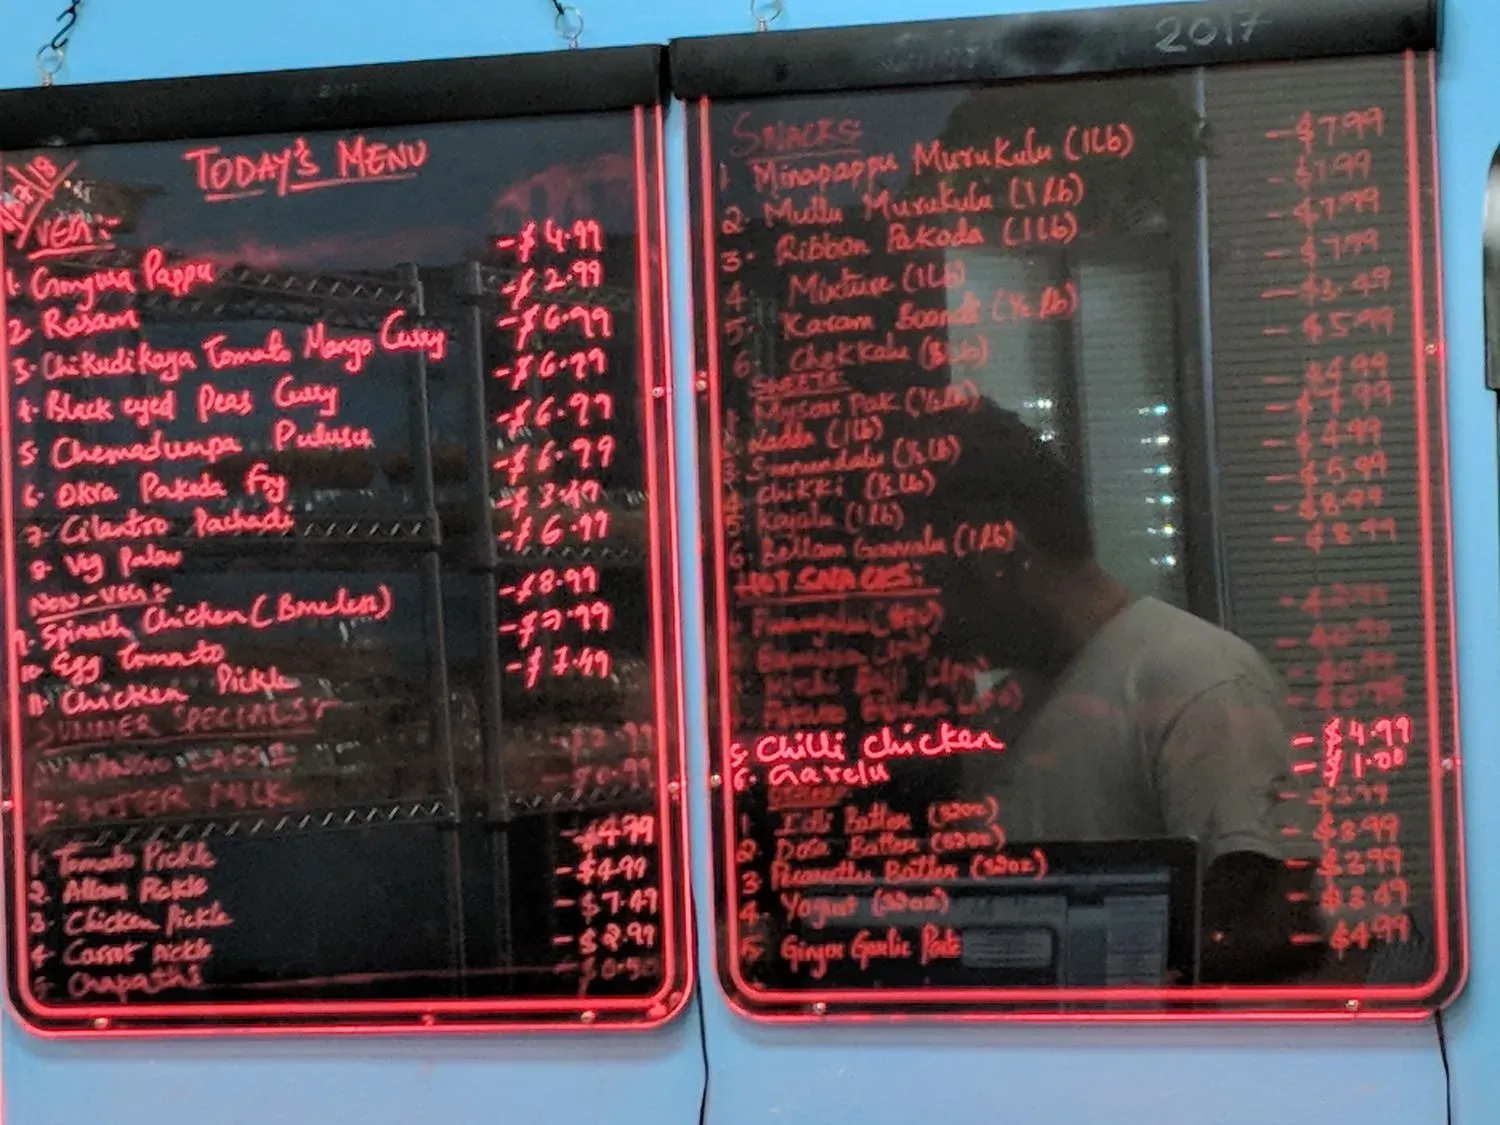 TODAY'S MENU
VEG:-
1. Gongura Pappu -$4.99
2. Rasam -$2.99
3. Chikudikaya Tomato Mango Curry -$6.99
4. Black eyed Peas Curry -$6.99
5. Chemadumpa Pulusu -$6.99
6. Okra Pakoda Fry -$6.99
7. Cilantro Pachadi -$3.49
8. Veg Pulav -$6.99
NON-VEG:-
9. Spinach Chicken (Boneless) -$8.99
10. Egg Tomato -$7.99
11. Chicken Pickle -$7.49
SUMMER SPECIALS
2. BUTTER MILK -$0.99
1. Tomato Pickle -$4.99
2. Allam Pickle -$4.99
3. Chicken Pickle -$7.49
4. Carrot Pickle -$2.99
5. Chapathi -$0.50
2017
SNACKS:
1. Minapappu Murukulu (1Lb) -$7.99
2. Mullu Murukulu (1Lb) -$7.99
3. Ribbon Pakoda (1Lb) -$7.99
4. Mixture (1Lb) -$7.99
5. Karam Boondi (½Lb) -$3.49
6. Chekkalu -$5.99
SWEETS
1. Mysore Pak (½Lb) -$4.99
2. Laddu (1Lb) -$7.99
3. Sunnundalu (½Lb) -$4.99
4. Chikki (½Lb) -$5.99
5. Kajalu (1Lb) -$8.99
6. Bellam Gavvalu (1Lb) -$8.49
HOT SNACKS:
5. Chilli Chicken -$4.99
6. Garelu -$1.00
1. Idli Batter (32oz) -$3.99
2. Dosa Batter (32oz) -$3.99
3. Pesarattu Batter (32oz) -$3.99
4. Yogurt (32oz) -$3.49
5. Ginger Garlic Paste -$4.99